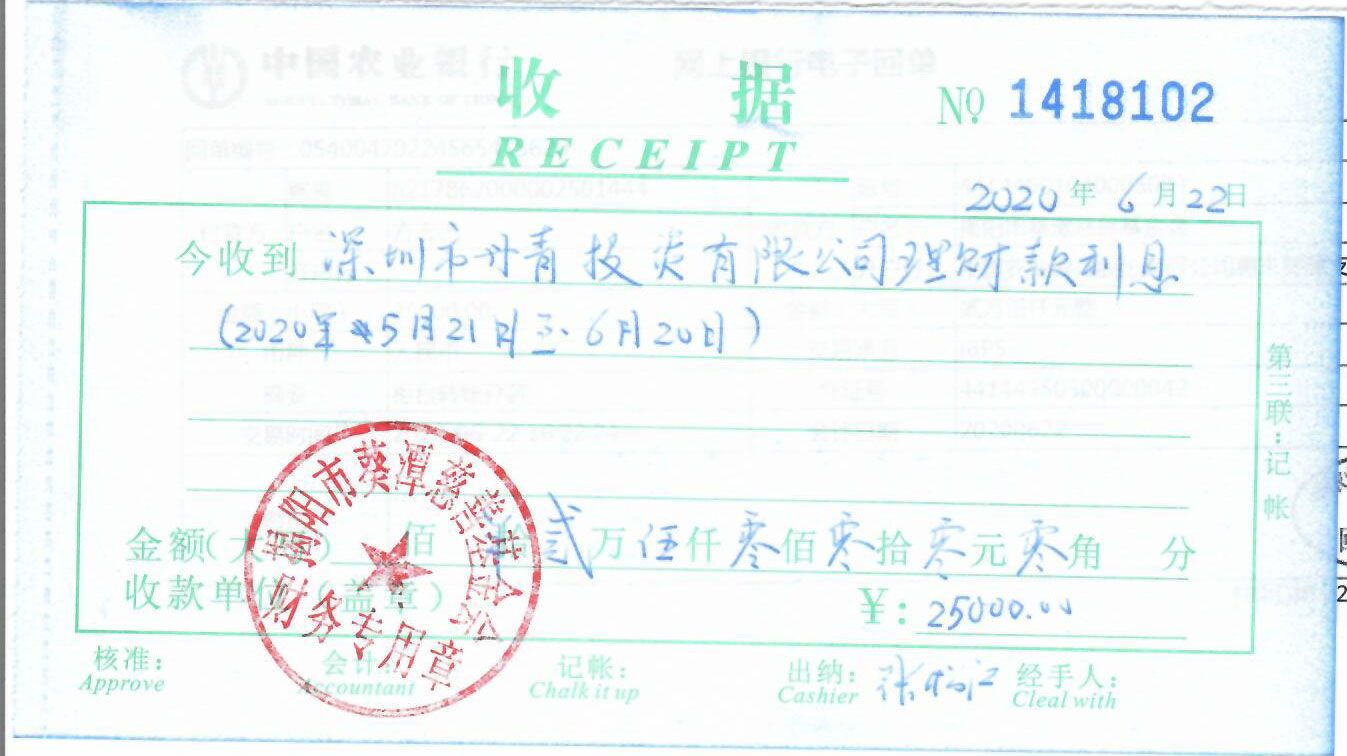 收 据
RECEIPT
№ 1418102
2020 年 6 月 22 日
今收到 深圳市丹青投资有限公司理财款利息
(2020年 5月21日至6月20日)
第三联:记帐
金额(大写) 佰 拾 贰 万 伍 仟 零 佰 零 拾 零 元 零 角 分
收款单位(盖章) ¥: 25000.00
揭阳市葵潭慈善基金会
财务专用章
核准: 会计: 记帐: 出纳: 张 经手人:
Approve Accountant Chalk it up Cashier Cleal with